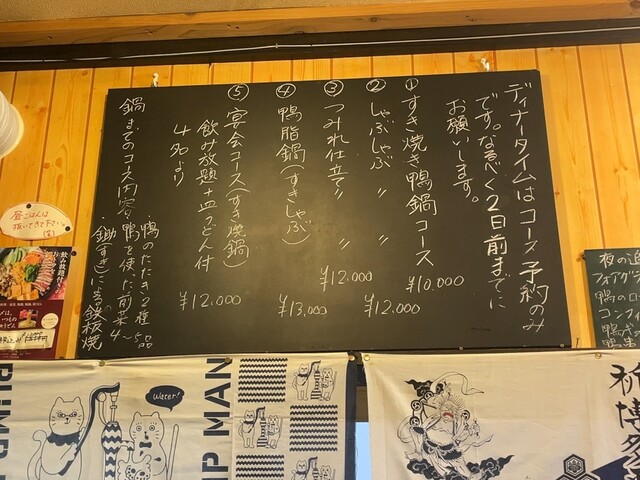 ディナータイムはコース予約のみ
です。なるべく2日前までに
お願いします。
①すき焼き鴨鍋コース ¥10,000
②しゃぶしゃぶ 〃 〃 ¥12,000
③つみれ仕立て 〃 〃 ¥12,000
④鴨脂鍋(すきしゃぶ) ¥13,000
⑤宴会コース(すき焼鍋)
飲み放題+皿うどん付 ¥12,000
4名より
鍋までのコース内容
・鴨のたたき2種
・鴨を使った前菜4〜5品
・鋤(すき)による鉄板焼
昼ごはんは
抜いてきて下さい
夜の追
フォアグラ
鴨のロ
コンフィ
鴨
鴨
飲み放題付
Water!
PUMP MAN
博多